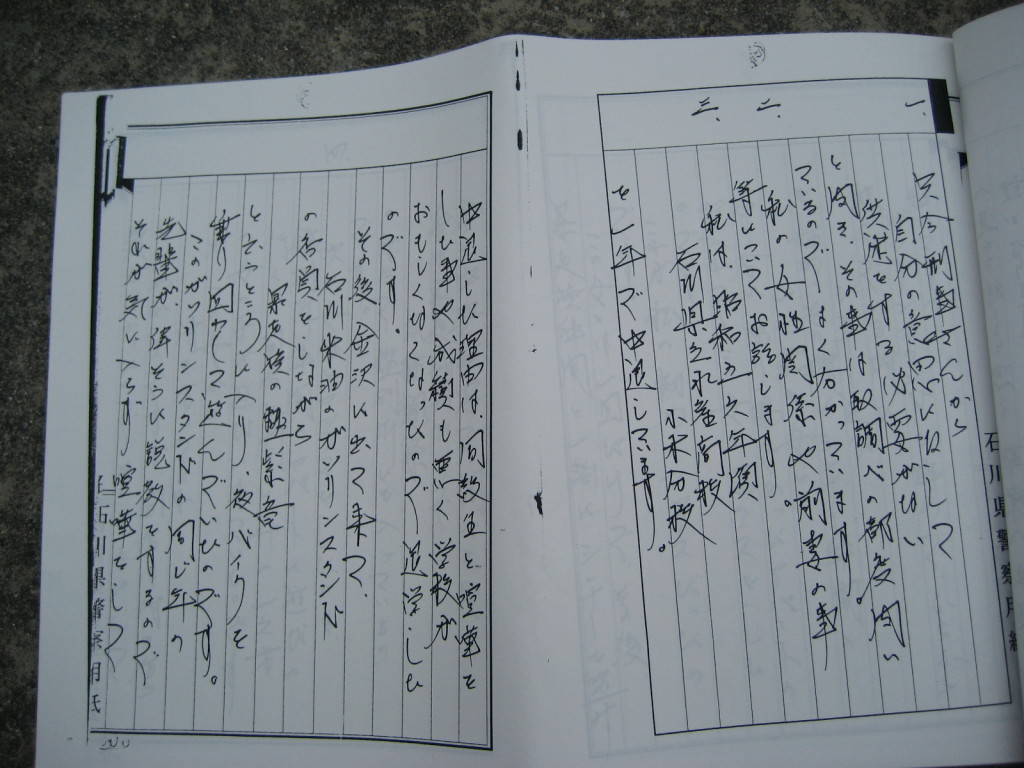 一、
只今刑事さんから
自分の意思に反して
供述をする必要がない
と聞き、その事は取調べの都度聞い
ているのでよく分かっています。
二、
私の女性関係や前妻の事
等についてお話します
三、
私は、昭和五六年頃
石川県立松任農高校
小木分校
を二年で中退しています。
中退した理由は、同級生と喧嘩を
した事や成績も悪く学校が
おもしくなくなったので退学した
のです。
その後、金沢に出て来て、
石川米油のガソリンスタンド
の店員をしながら
暴走族の
というところに入り、夜バイクを
乗り回して遊んでいたのです。
このガソリンスタンドの同じ年の
先輩が、偉そうに説教をするので
それが気に入らず喧嘩をして
石川県警察用紙
石川県警察用紙